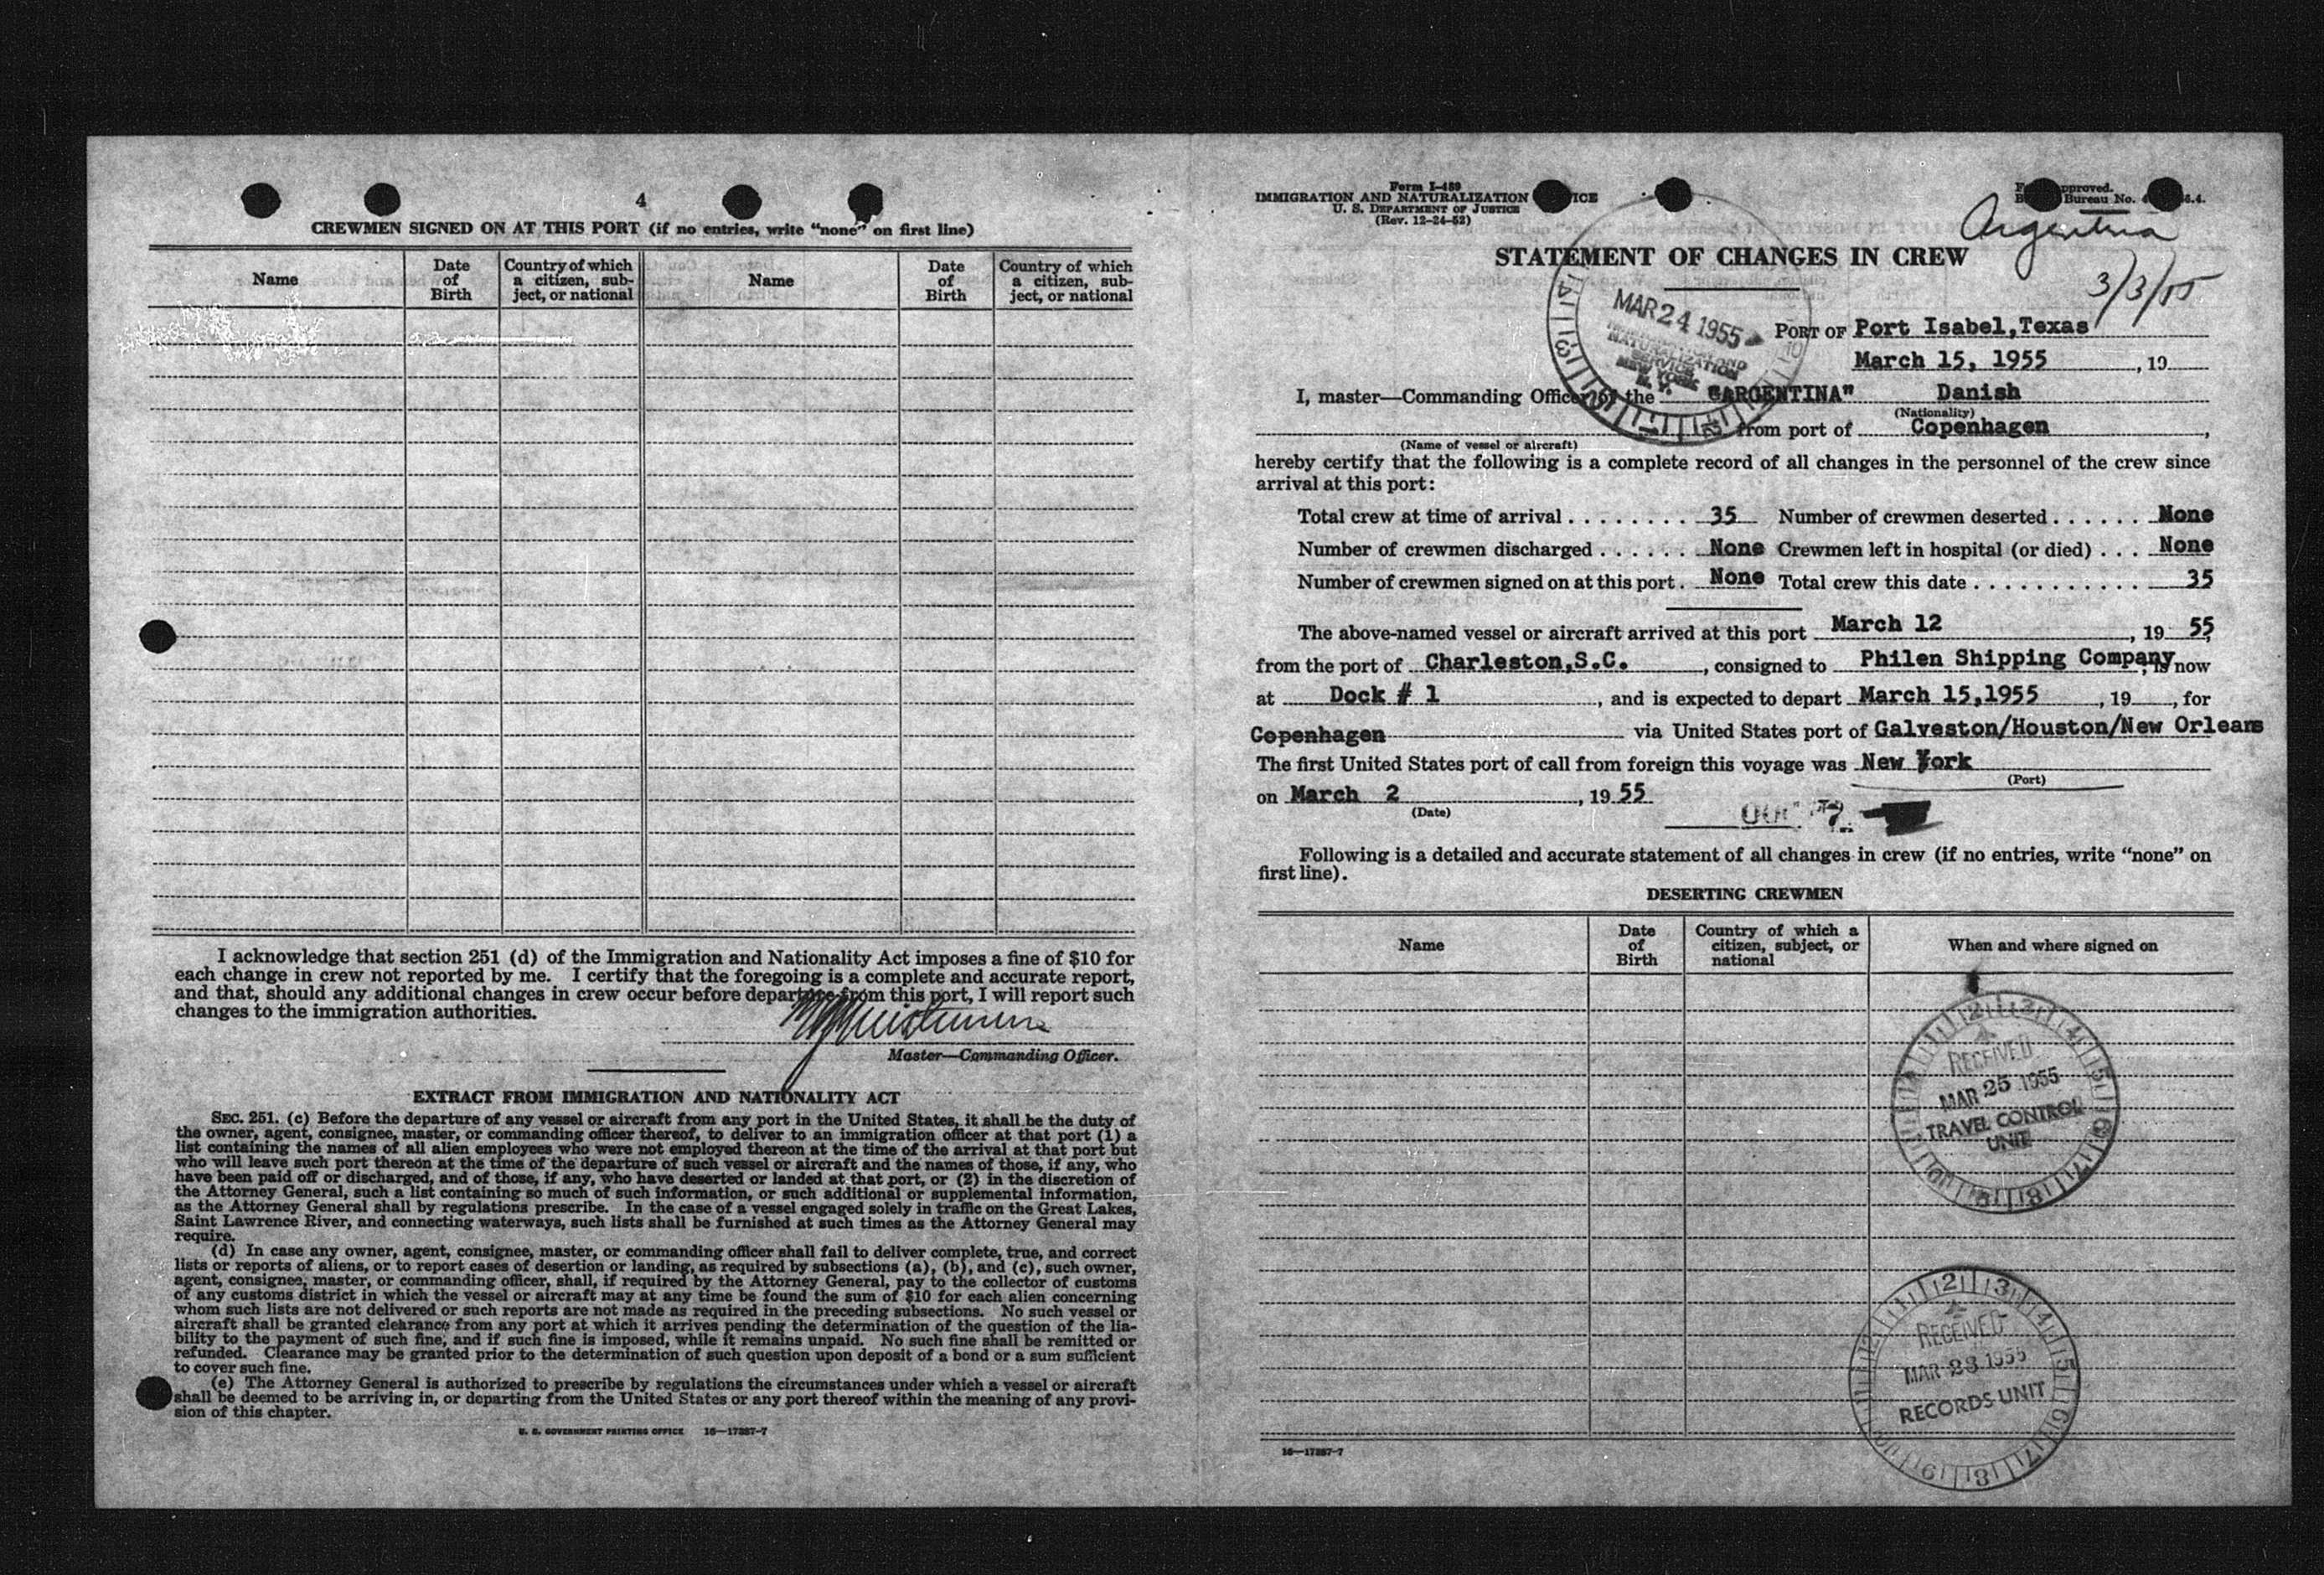 4
CREWMEN SIGNED ON AT THIS PORT (if no entries, write "none" on first line)
Name
Date of Birth
Country of which a citizen, sub-ject, or national
Name
Date of Birth
Country of which a citizen, sub-ject, or national
I acknowledge that section 251 (d) of the Immigration and Nationality Act imposes a fine of $10 for
each change in crew not reported by me. I certify that the foregoing is a complete and accurate report,
and that, should any additional changes in crew occur before departure from this port, I will report such
changes to the immigration authorities.
Master—Commanding Officer.
EXTRACT FROM IMMIGRATION AND NATIONALITY ACT
SEC. 251. (c) Before the departure of any vessel or aircraft from any port in the United States, it shall be the duty of
the owner, agent, consignee, master, or commanding officer thereof, to deliver to an immigration officer at that port (1) a
list containing the names of all alien employees who were not employed thereon at the time of the arrival at that port but
who will leave such port thereon at the time of the departure of such vessel or aircraft and the names of those, if any, who
have been paid off or discharged, and of those, if any, who have deserted or landed at that port, or (2) in the discretion of
the Attorney General, such a list containing so much of such information, or such additional or supplemental information,
as the Attorney General shall by regulations prescribe. In the case of a vessel engaged solely in traffic on the Great Lakes,
Saint Lawrence River, and connecting waterways, such lists shall be furnished at such times as the Attorney General may
require.
(d) In case any owner, agent, consignee, master, or commanding officer shall fail to deliver complete, true, and correct
lists or reports of aliens, or to report cases of desertion or landing, as required by subsections (a), (b), and (c), such owner,
agent, consignee, master, or commanding officer, shall, if required by the Attorney General, pay to the collector of customs
of any customs district in which the vessel or aircraft may at any time be found the sum of $10 for each alien concerning
whom such lists are not delivered or such reports are not made as required in the preceding subsections. No such vessel or
aircraft shall be granted clearance from any port at which it arrives pending the determination of the question of the lia-
bility to the payment of such fine, and if such fine is imposed, while it remains unpaid. No such fine shall be remitted or
refunded. Clearance may be granted prior to the determination of such question upon deposit of a bond or a sum sufficient
to cover such fine.
(e) The Attorney General is authorized to prescribe by regulations the circumstances under which a vessel or aircraft
shall be deemed to be arriving in, or departing from the United States or any port thereof within the meaning of any provi-
sion of this chapter.
U. S. GOVERNMENT PRINTING OFFICE 16—17387-7
Form I-489
IMMIGRATION AND NATURALIZATION
U. S. DEPARTMENT OF JUSTICE
(Rev. 12-24-52)
Bureau No.
Argentina
3/3/55
STATEMENT OF CHANGES IN CREW
MAR 24 1955
NATURALIZATION
SERVICE
NEW YORK
N. Y.
PORT OF Port Isabel,Texas
March 15, 1955, 19
I, master—Commanding Officer of the "ARGENTINA" Danish
(Nationality)
from port of Copenhagen,
(Name of vessel or aircraft)
hereby certify that the following is a complete record of all changes in the personnel of the crew since
arrival at this port:
Total crew at time of arrival 35 Number of crewmen deserted None
Number of crewmen discharged None Crewmen left in hospital (or died) None
Number of crewmen signed on at this port None Total crew this date 35
The above-named vessel or aircraft arrived at this port March 12, 19 55,
from the port of Charleston,S.C., consigned to Philen Shipping Company, is now
at Dock # 1, and is expected to depart March 15,1955, 19, for
Copenhagen via United States port of Galveston/Houston/New Orleans
The first United States port of call from foreign this voyage was New York
(Port)
on March 2, 19 55
(Date)
Following is a detailed and accurate statement of all changes in crew (if no entries, write "none" on
first line).
DESERTING CREWMEN
Name
Date of Birth
Country of which a citizen, subject, or national
When and where signed on
RECEIVED
MAR 25 1955
TRAVEL CONTROL
UNIT
RECEIVED
MAR 23 1955
RECORDS UNIT
16—17387-7